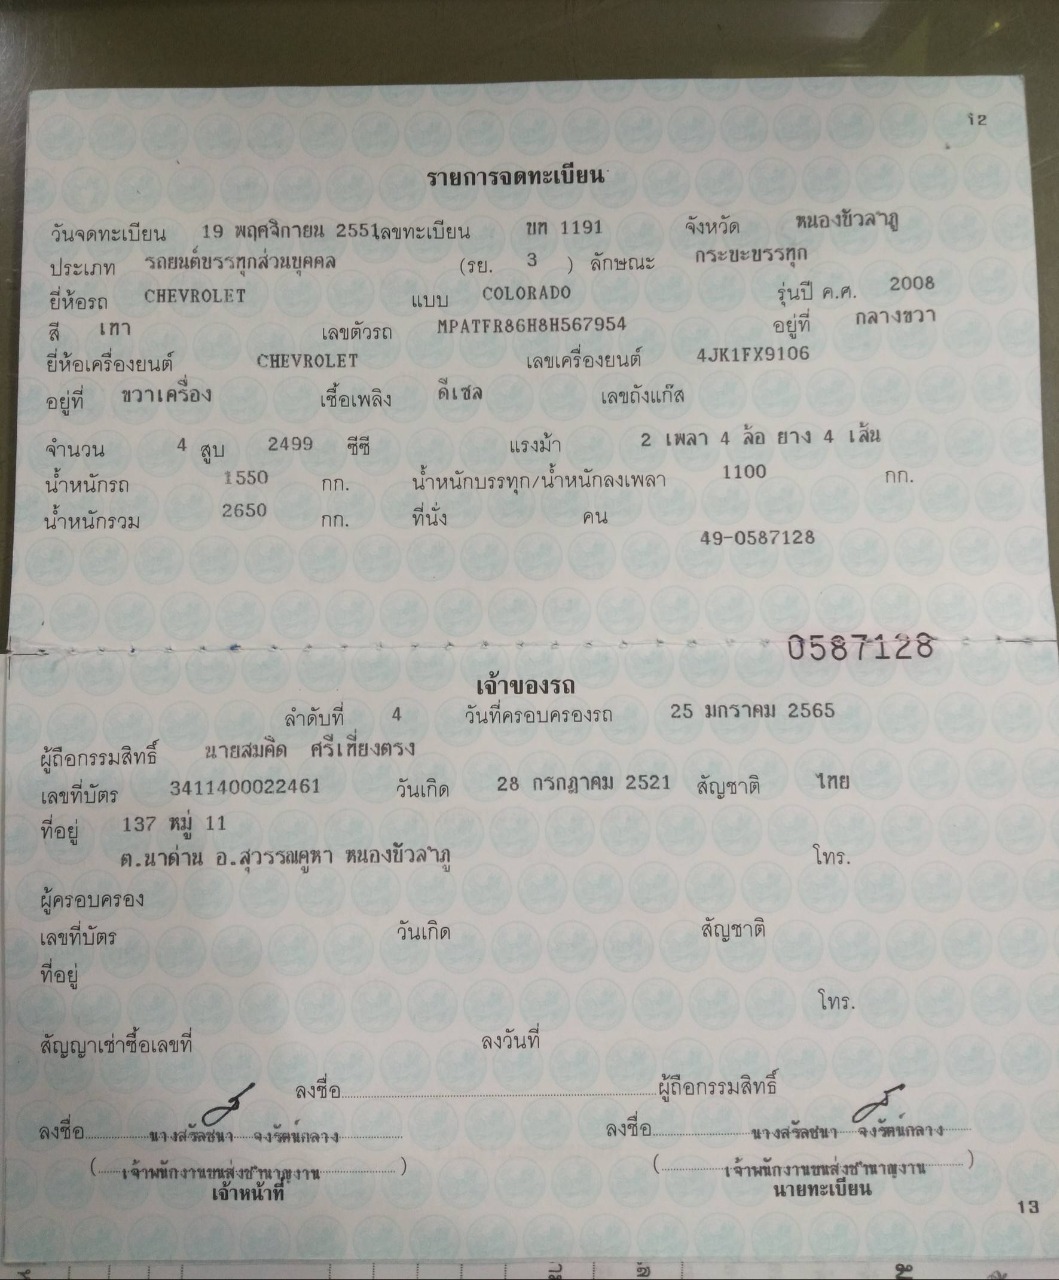 12
รายการจดทะเบียน
วันจดทะเบียน 19 พฤศจิกายน 2551 เลขทะเบียน บท 1191 จังหวัด หนองบัวลำภู
ประเภท รถยนต์บรรทุกส่วนบุคคล (รย. 3 ) ลักษณะ กระบะบรรทุก
ยี่ห้อรถ CHEVROLET แบบ COLORADO รุ่นปี ค.ศ. 2008
สี เทา เลขตัวรถ MPATFR86H8H567954 อยู่ที่ กลางขวา
ยี่ห้อเครื่องยนต์ CHEVROLET เลขเครื่องยนต์ 4JK1FX9106
อยู่ที่ ขวาเครื่อง เชื้อเพลิง ดีเซล เลขถังแก๊ส
จำนวน 4 สูบ 2499 ซีซี แรงม้า 2 เพลา 4 ล้อ ยาง 4 เส้น
น้ำหนักรถ 1550 กก. น้ำหนักบรรทุก/น้ำหนักลงเพลา 1100 กก.
น้ำหนักรวม 2650 กก. ที่นั่ง คน
49-0587128
0587128
เจ้าของรถ
ลำดับที่ 4 วันที่ครอบครองรถ 25 มกราคม 2565
ผู้ถือกรรมสิทธิ์ นายสมคิด ศรีเที่ยงตรง
เลขที่บัตร 3411400022461 วันเกิด 28 กรกฎาคม 2521 สัญชาติ ไทย
ที่อยู่ 137 หมู่ 11
ต.นาด่าน อ.สุวรรณคูหา หนองบัวลำภู โทร.
ผู้ครอบครอง
เลขที่บัตร วันเกิด สัญชาติ
ที่อยู่
โทร.
สัญญาเช่าซื้อเลขที่ ลงวันที่
ลงชื่อ ผู้ถือกรรมสิทธิ์
ลงชื่อ นางสรัลชนา จงรัตน์กลาง ลงชื่อ นางสรัลชนา จงรัตน์กลาง
( เจ้าพนักงานขนส่งชำนาญงาน ) ( เจ้าพนักงานขนส่งชำนาญงาน )
เจ้าหน้าที่ นายทะเบียน
13